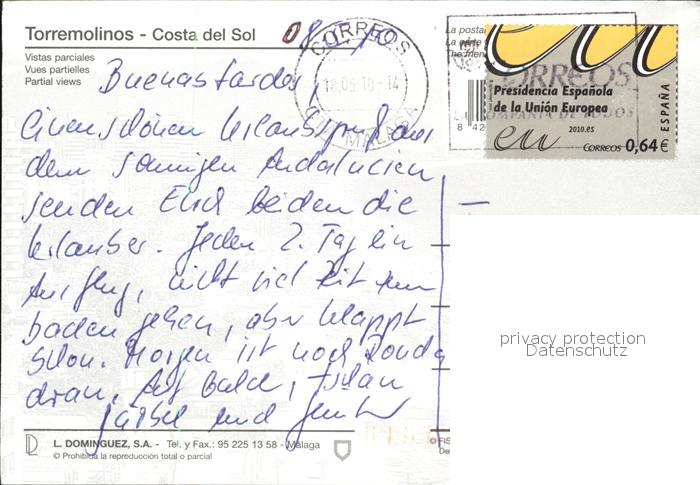 Torremolinos - Costa del Sol
Vistas parciales
Vues partielles
Partial views
CORREOS
18.05.10-14
MALAGA
La postal
CORREOS
Presidencia Española
de la Unión Europea
eu 2010.es
CORREOS 0,64€
ESPAÑA
8 42
Buenas tardes,
Einen schönen Urlaubsgruß aus
dem sonnigen Andalucien
senden Euch beiden die
Urlauber. Jeden 2. Tag ein
Ausflug, nicht viel Zeit zum
baden gehen, aber klappt
schon. Morgen ist noch Ronda
dran. Auf bald,
und
privacy protection
Datenschutz
L. DOMINGUEZ, S.A. - Tel. y Fax.: 95 225 13 58 - Málaga
© Prohibida la reproducción total o parcial
© FIS
De